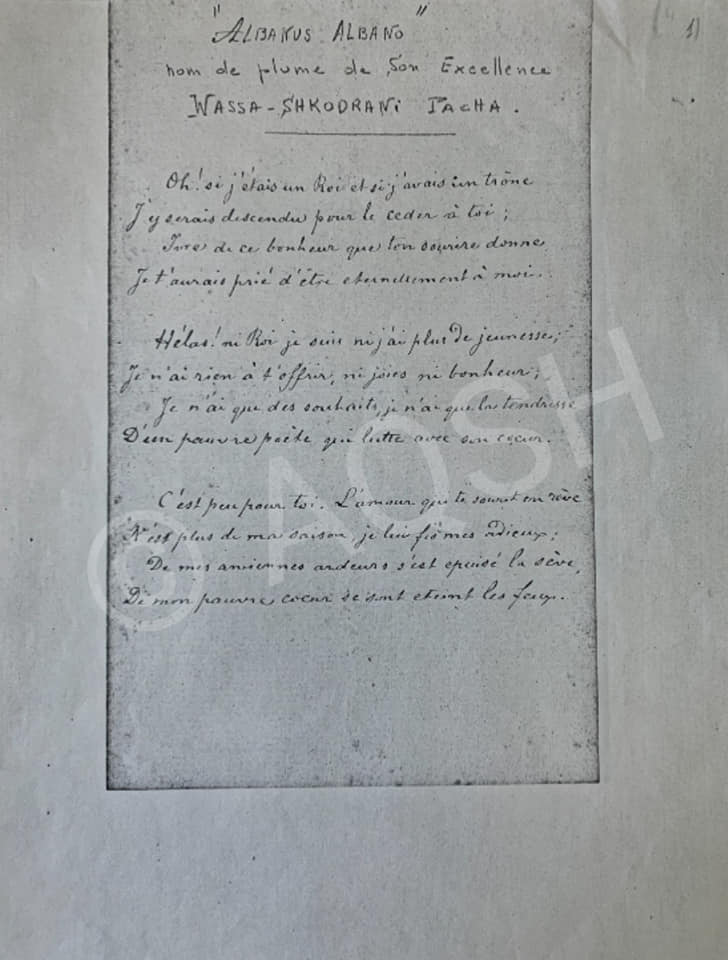 "ALBANUS ALBANO"
nom de plume de Son Excellence
WASSA-SHKODRANI PACHA.
1)
Oh! si j'étais un Roi et si j'avais un trône
J'y serais descendu pour le ceder à toi;
Ivre de ce bonheur que ton sourire donne
Je t'aurais prié d'être eternellement à moi.
Hélas! ni Roi je suis ni j'ai plus de jeunesse;
Je n'ai rien à t'offrir, ni joies ni bonheur;
Je n'ai que des souhaits, je n'ai que la tendresse
D'un pauvre poëte qui lutte avec son coeur.
C'est peu pour toi. L'amour qui te sourit en rêve
N'est plus de ma saison, je lui fis mes adieux;
De mes anciennes ardeurs s'est epuisé la sève,
De mon pauvre coeur se sont eteint les feux.
© AQSH